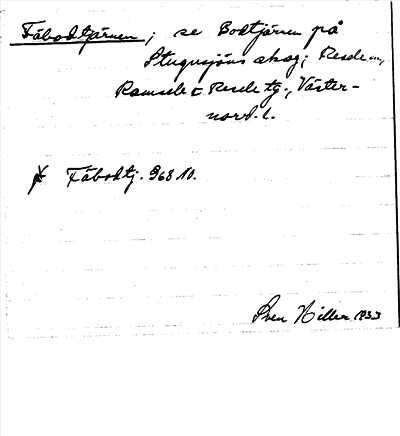 Fäbodtjärnen; se Bodtjärnen på
Stugusjöns skog; Resele sn,
Ramsele & Resele tg., Väster-
norrl. l.
Fäbodtj. 968 10.
Sven Hiller 1933